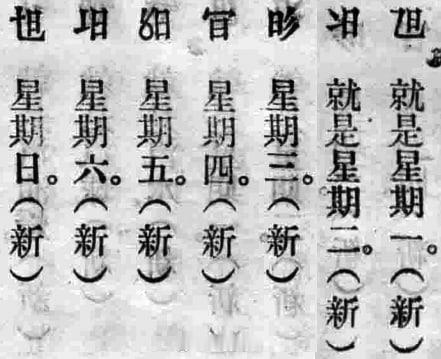 就是星期一。（新）
就是星期二。（新）
星期三。（新）
星期四。（新）
星期五。（新）
星期六。（新）
星期日。（新）